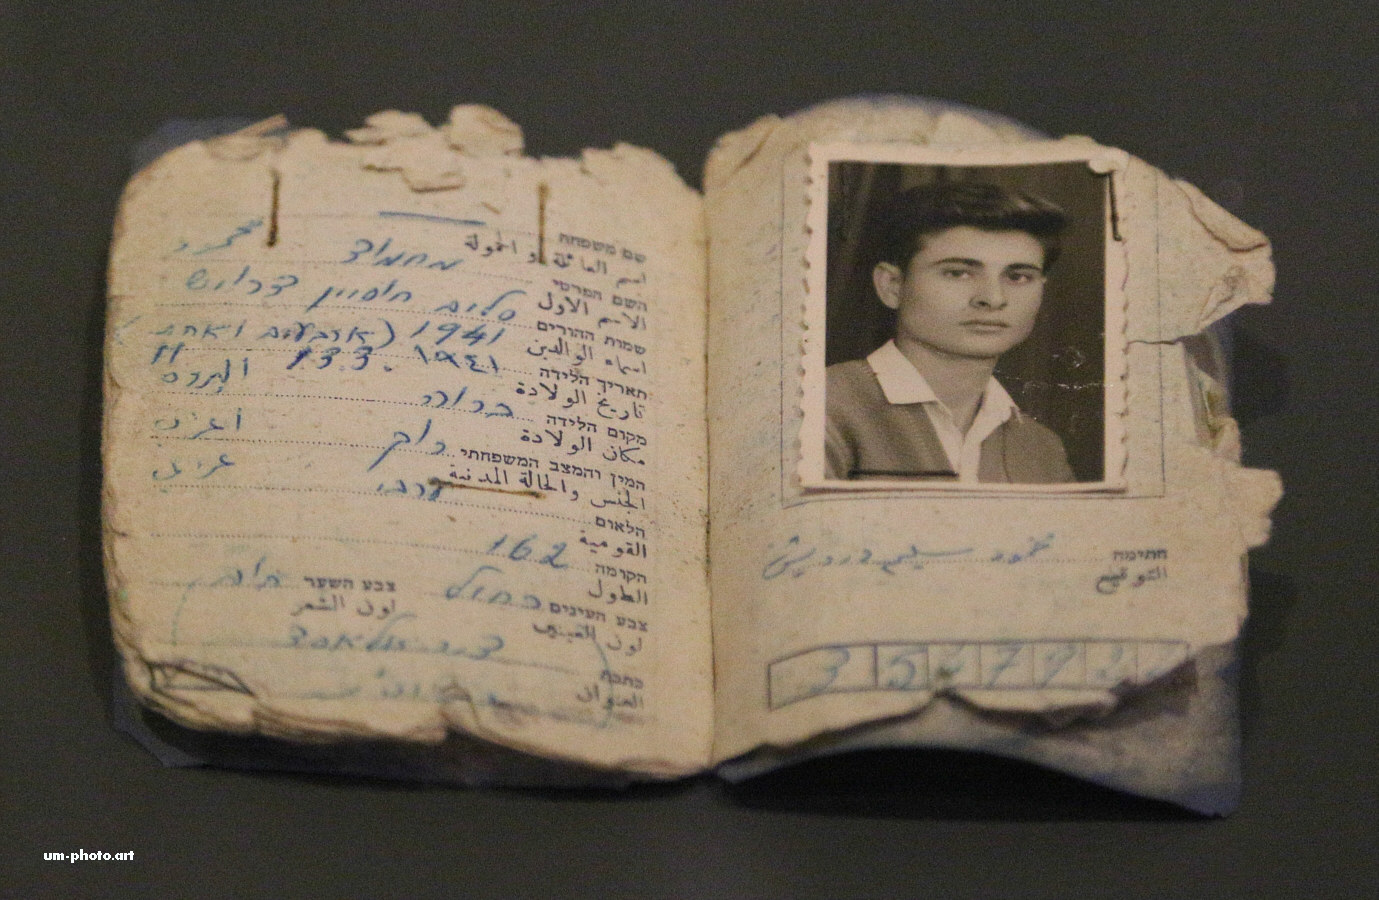 שם משפחה
اسم العائلة او الحمولة
מחמוד
השם הפרטי
الاسم الاول
סלים חוסיין דרויש
שמות ההורים
اسماء الوالدين
1941 (ארבעים ואחת)
תאריך הלידה
تاريخ الولادة
13.3. ١٩٤١
מקום הלידה
مكان الولادة
ברווה
המין והמצב המשפחתי
الجنس والحالة المدنية
רוק
اعزب
הלאום
القومية
ערבי
عربي
הקומה
الطول
162
צבע העינים
لون العينين
כחול
צבע השער
لون الشعر
חום
כתבת
العنوان
דיר אל אסד
חתימה
التوقيع
محمود سليم درويش
um-photo.art